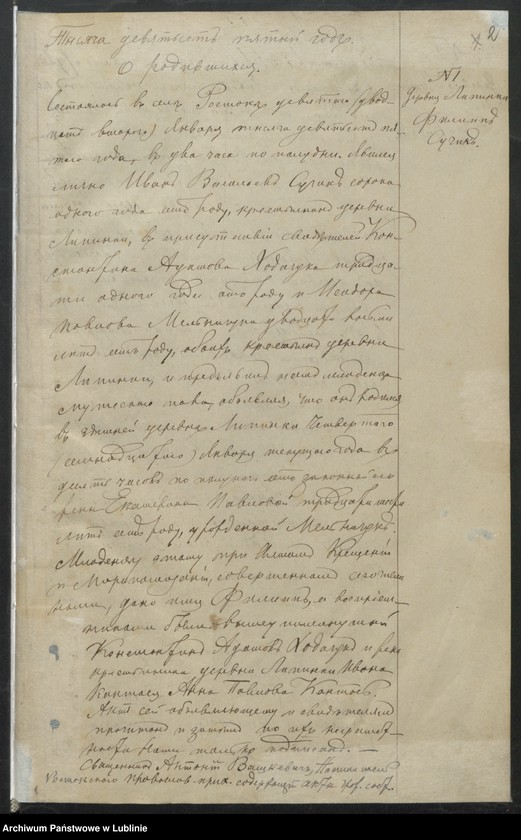 2
Тысяча девятьсотъ пятый годъ.
О родившихся.
№1.
Деревни Липинки
Филиппъ
Сучикъ.
Состоялось въ селѣ Ростокѣ девятаго (двад-
цать втораго) Января тысяча девятьсотъ пя-
таго года, въ два часа по полудни. Явился
лично Иванъ Сучикъ сорока
одного года отъ роду, крестьянинъ деревни
Липинки, въ присутствіи свидѣтелей Кон-
стантина Адамова Ходачука тридца-
ти одного года отъ роду и Исидора
Павлова Мельничука двадцати восьми
лѣтъ отъ роду, обоихъ крестьянъ деревни
Липинки, и предъявилъ намъ младенца
мужескаго пола, объявляя, что онъ родился
въ деревнѣ Липинки Четвертаго
(семнадцатаго) Января текущаго года въ
десять часовъ по полуночи отъ законной его
жены Екатерины Павловой тридцати
лѣтъ отъ роду, урожденной Мельничукъ.
Младенцу этому при Святомъ Крещеніи
и Миропомазаніи, совершенномъ
дано имя Филиппъ, а воспріем-
никами были вышеупомянутый
Константинъ Адамовъ Ходачукъ и жена
крестьянина деревни Липинки Ивана
Анна Павлова
Актъ сей объявляющему и свидѣтелямъ
прочитанъ и по ихъ неграмот-
ности Нами только подписанъ. —
Священникъ Антоній Вашкевичъ, Настоятель
Ростокскаго православ. прих. содержащій акты гр. сост.
Archiwum Państwowe w Lublinie